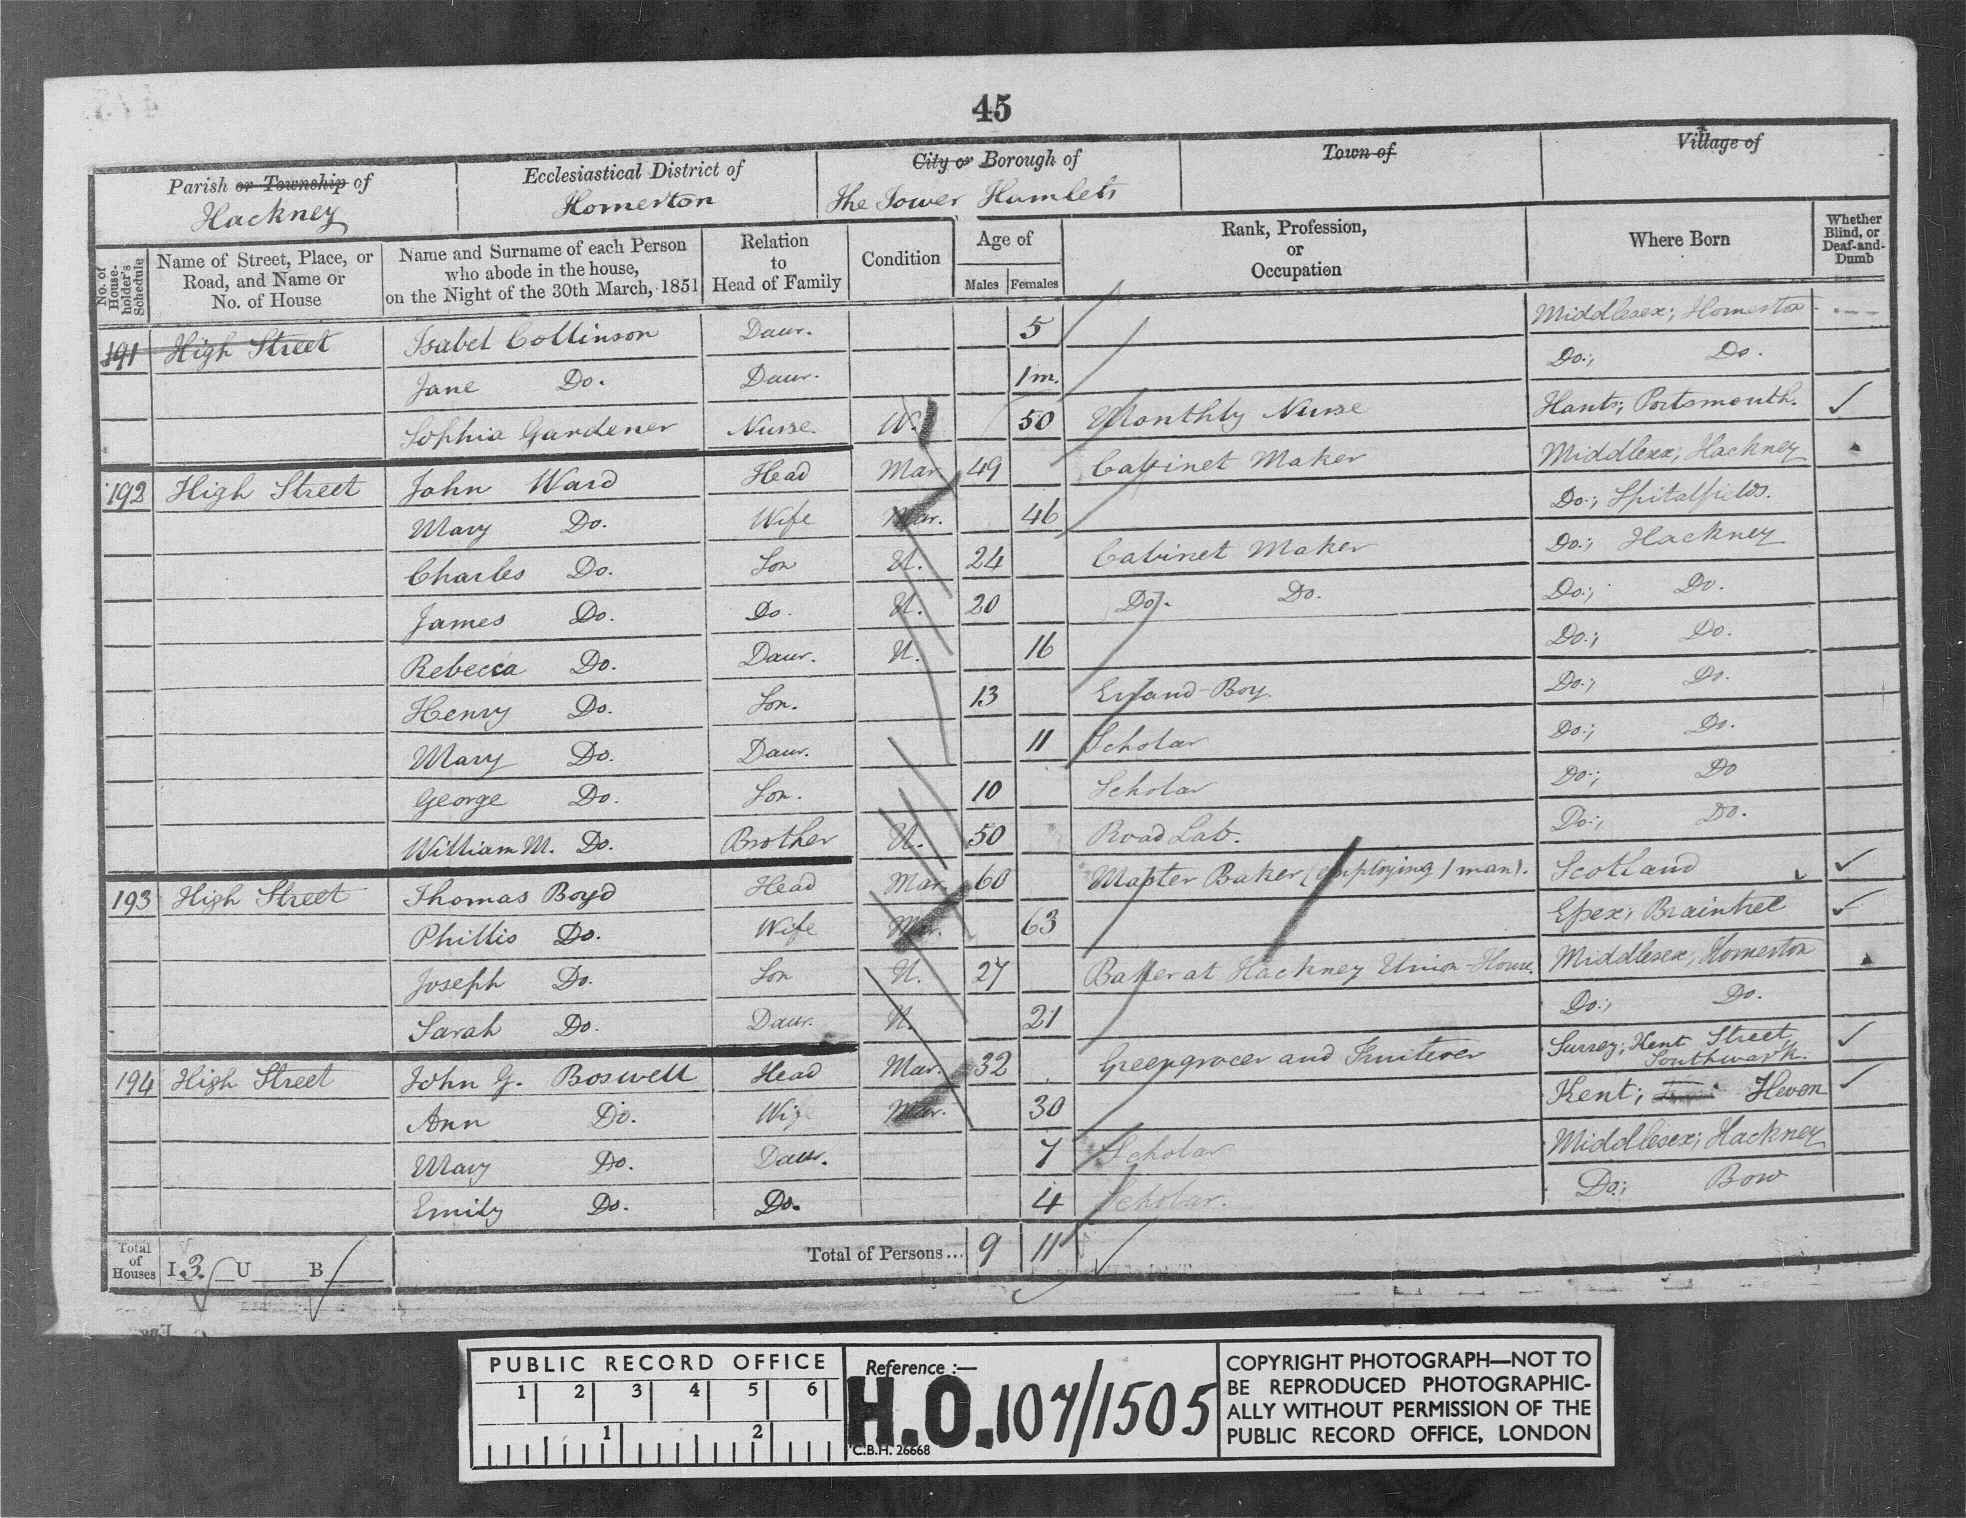 45
Parish or Township of Ecclesiastical District of City or Borough of Town of Village of
Hackney Homerton The Tower Hamlets
No. of House-holder's Schedule Name of Street, Place, or Road, and Name or No. of House Name and Surname of each Person who abode in the house, on the Night of the 30th March, 1851 Relation to Head of Family Condition Age of Males Females Rank, Profession, or Occupation Where Born Whether Blind, or Deaf-and-Dumb
191 High Street Isabel Collinson Daur. 5 Middlesex; Homerton
Jane Do. Daur. 1 m. Do.; Do.
Sophia Gardener Nurse W. 50 Monthly Nurse Hants; Portsmouth.
192 High Street John Ward Head Mar. 49 Cabinet Maker Middlesex; Hackney
Mary Do. Wife Mar. 46 Do.; Spitalfields.
Charles Do. Son U. 24 Cabinet Maker Do.; Hackney
James Do. Do. U. 20 Do. Do. Do.; Do.
Rebecca Do. Daur. U. 16 Do.; Do.
Henry Do. Son. 13 Errand-Boy. Do.; Do.
Mary Do. Daur. 11 Scholar Do.; Do.
George Do. Son. 10 Scholar Do.; Do
William M. Do. Brother U. 50 Road Lab. Do.; Do.
193 High Street Thomas Boyd Head Mar. 60 Master Baker (employing 1 man). Scotland
Phillis Do. Wife Mar. 63 Essex; Braintree
Joseph Do. Son U. 27 Baker at Hackney Union-House. Middlesex; Homerton
Sarah Do. Daur. U. 21 Do.; Do.
194 High Street John G. Boswell Head Mar. 32 Greengrocer and Fruiterer Surrey; Kent Street, Southwark.
Ann Do. Wife Mar. 30 Kent; Hevon
Mary Do. Daur. 7 Scholar Middlesex; Hackney
Emily Do. Do. 4 Scholar. Do.; Bow
Total of Houses I. 3. U B Total of Persons... 9 11
PUBLIC RECORD OFFICE
1 2 3 4 5 6
1 2
Reference :—
H.O. 107/1505
C.B.H. 26668
COPYRIGHT PHOTOGRAPH—NOT TO
BE REPRODUCED PHOTOGRAPHIC-
ALLY WITHOUT PERMISSION OF THE
PUBLIC RECORD OFFICE, LONDON